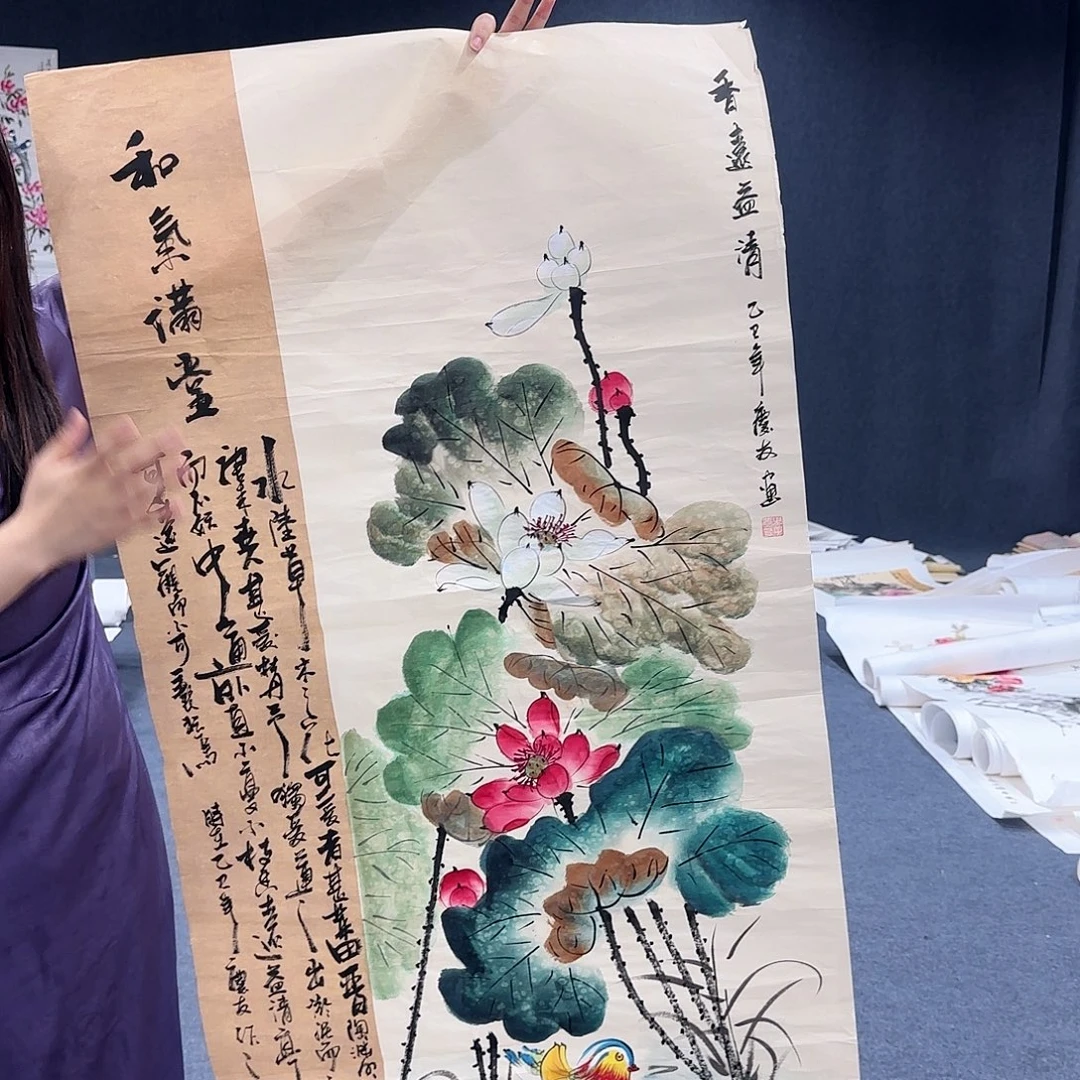 香遠益清 乙巳年慶友畫
和氣滿堂
水陸草木之花可愛者甚蕃晉陶淵明
來甚愛牡丹予獨愛蓮之出淤泥而
而不妖中通外直不蔓不枝香遠益清亭
可遠觀而不可褻玩焉
時在乙巳年慶友作